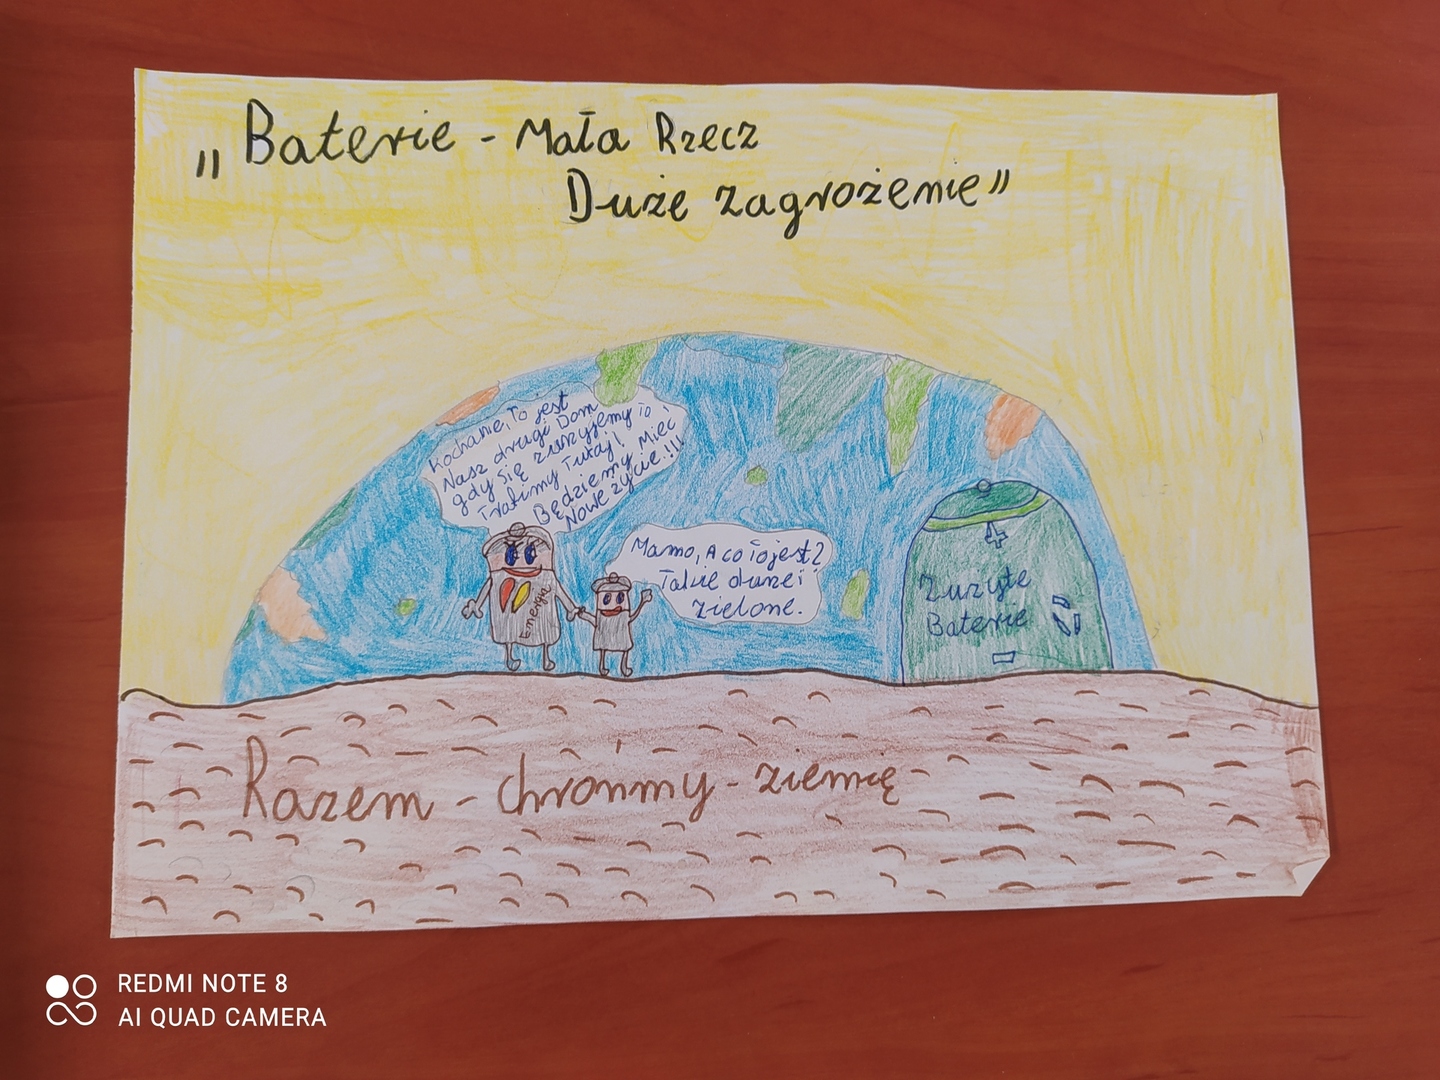 „Baterie - Mała Rzecz
Duże zagrożenie”
Kochanie, To jest
Nasz drugi Dom
gdy się zużyjemy to
Trafimy Tutaj i
Będziemy Mieć
Nowe życie!!!
Mamo, A co to jest?
Takie duże i
zielone.
Energia
Zużyte
Baterie
Razem - chrońmy - ziemię
REDMI NOTE 8
AI QUAD CAMERA